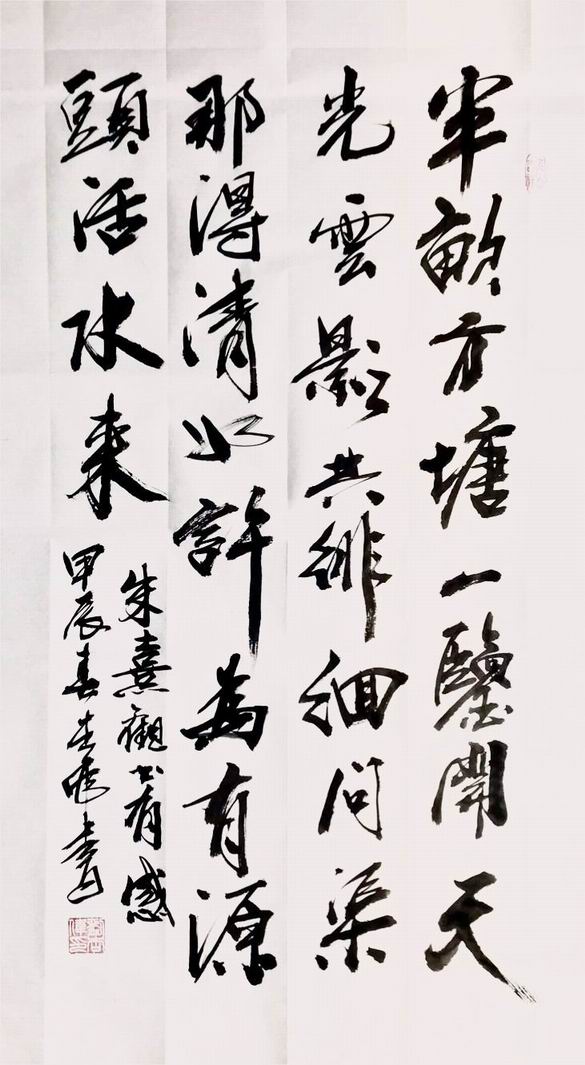 半畝方塘一鑒開天
光雲影共徘徊問渠
那得清如許為有源
頭活水来
朱熹觀书有感
甲辰春書